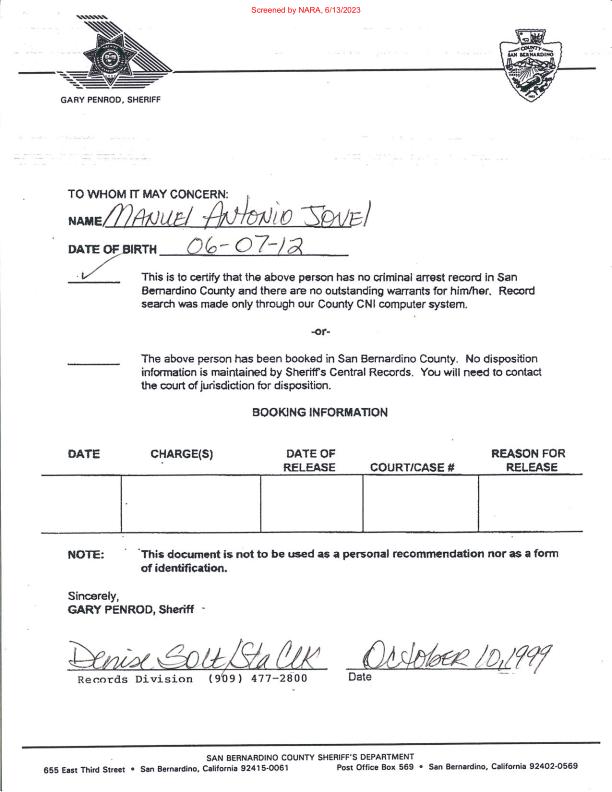 Screened by NARA, 6/13/2023
COUNTY
SAN BERNARDINO
GARY PENROD, SHERIFF
TO WHOM IT MAY CONCERN:
NAME MANUEL ANTONIO JOVEL
DATE OF BIRTH 06-07-12
✓ This is to certify that the above person has no criminal arrest record in San
Bernardino County and there are no outstanding warrants for him/her. Record
search was made only through our County CNI computer system.
-or-
The above person has been booked in San Bernardino County. No disposition
information is maintained by Sheriff's Central Records. You will need to contact
the court of jurisdiction for disposition.
BOOKING INFORMATION
DATE CHARGE(S) DATE OF RELEASE COURT/CASE # REASON FOR RELEASE
NOTE: This document is not to be used as a personal recommendation nor as a form
of identification.
Sincerely,
GARY PENROD, Sheriff
Denise Solt/Sta Clk OCTOBER 10, 1999
Records Division (909) 477-2800 Date
SAN BERNARDINO COUNTY SHERIFF'S DEPARTMENT
655 East Third Street • San Bernardino, California 92415-0061 Post Office Box 569 • San Bernardino, California 92402-0569